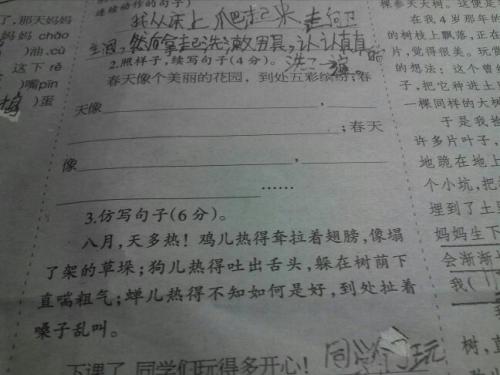 连续动作的句子)
我从床上爬起来走向卫
生间,然而拿起洗漱用具,认认真真的
洗了一
2.照样子,续写句子(4分)。
春天像个美丽的花园,到处五彩缤纷;春
天像____,____
____;春天
像____,____
____……
3.仿写句子(6分)。
八月,天多热!鸡儿热得耷拉着翅膀,像塌
了架的草垛;狗儿热得吐出舌头,躲在树荫下
直喘粗气;蝉儿热得不知如何是好,到处扯着
嗓子乱叫。
下课了,同学们玩得多开心!同学们玩
了,那天妈妈
妈妈 chǎo
)油.cù
这下 rě
)嘴pīn
)蛋
棵参天大树。这便是
在我4岁那年
的树枝上飘落,正在
片,觉得很美。玩
的想法:这个曾
子,把它种进土里
一棵同样的大树
于是我
许多片叶子,
地跪在地上
个小坑,把
埋到了土
妈妈生下
会渐渐
我(
到
树,直